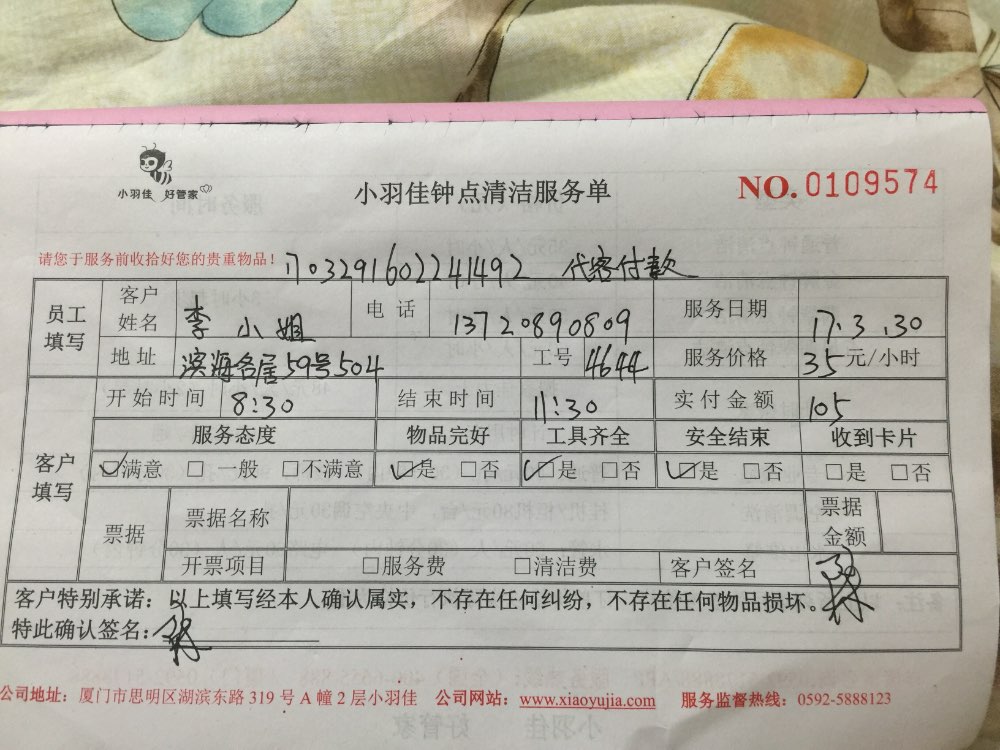 小羽佳 好管家
小羽佳钟点清洁服务单
NO.0109574
请您于服务前收拾好您的贵重物品！ 1703291602241492 代客付款
员工填写 客户姓名 李小姐 电话 13720890809 服务日期 17.3.30
地址 滨海名居59号504 工号 4644 服务价格 35元/小时
客户填写 开始时间 8:30 结束时间 11:30 实付金额 105
服务态度 物品完好 工具齐全 安全结束 收到卡片
☑满意 □一般 □不满意 ☑是 □否 ☑是 □否 ☑是 □否 □是 □否
票据 票据名称 票据金额
开票项目 □服务费 □清洁费 客户签名
客户特别承诺：以上填写经本人确认属实，不存在任何纠纷，不存在任何物品损坏。
特此确认签名：
公司地址：厦门市思明区湖滨东路 319 号 A 幢 2 层小羽佳 公司网站：www.xiaoyujia.com 服务监督热线：0592-5888123